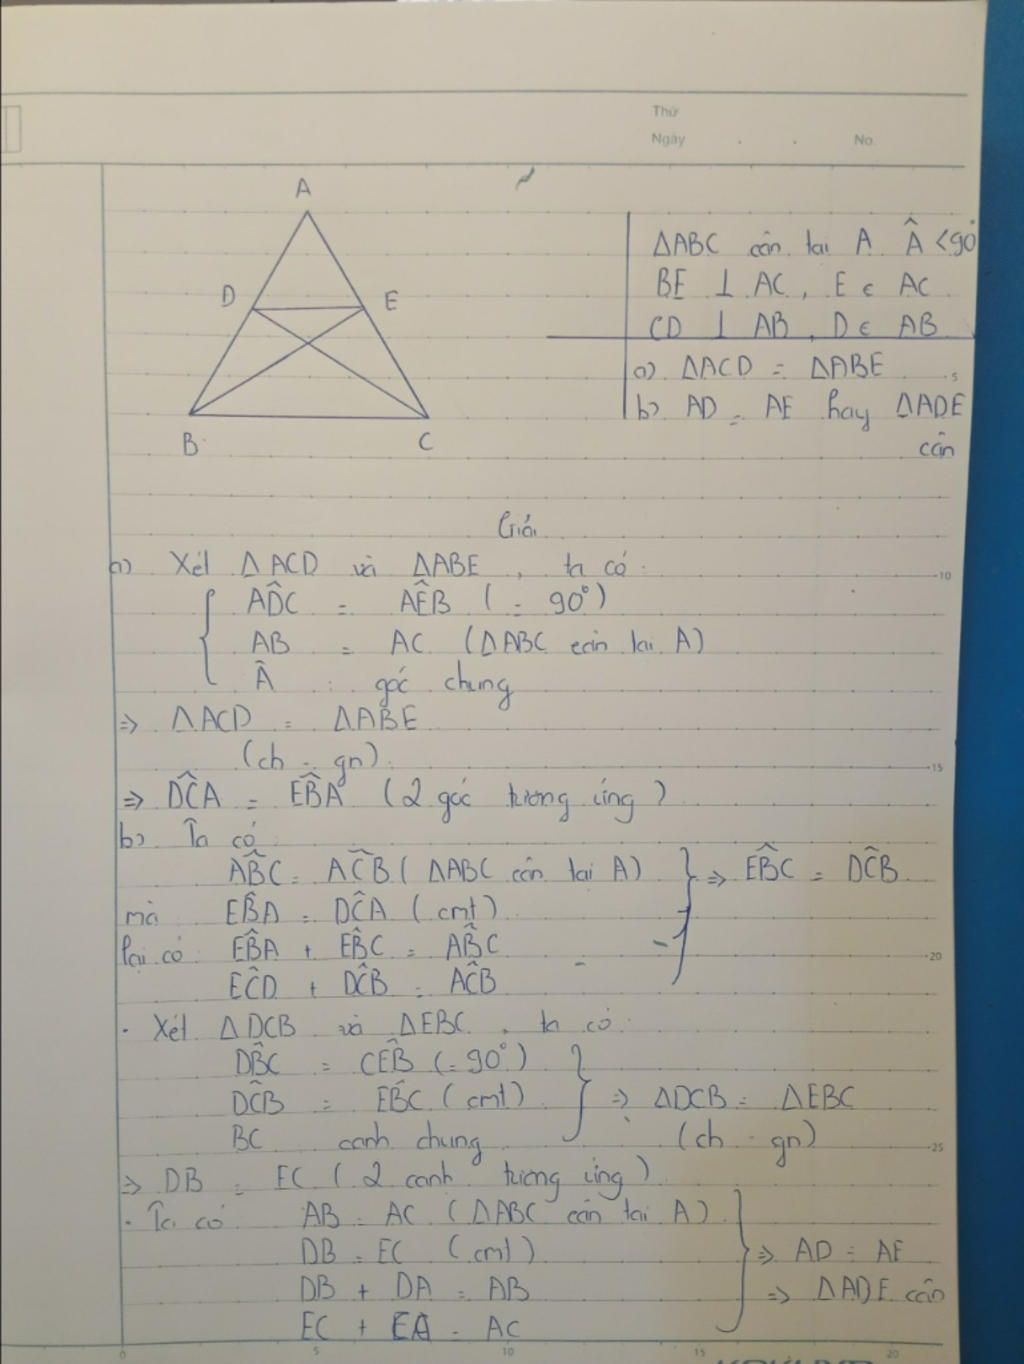 Thứ
Ngày . . No.
A
D
E
B
C
ΔABC cân tại A. Â < 90
BE ⊥ AC, E ∈ AC
CD ⊥ AB, D ∈ AB
a) ΔACD = ΔABE
b) AD = AE hay ΔADE
cân
Giải
a) Xét ΔACD và ΔABE, ta có:
AD̂C = AÊB (= 90°)
AB = AC (ΔABC cân tại A)
Â : góc chung
=> ΔACD = ΔABE
(ch - gn)
=> DĈA = EB̂A (2 góc tương ứng)
b) Ta có
AB̂C = AĈB (ΔABC cân tại A)
=> EB̂C = DĈB
mà EB̂A = DĈA (cmt)
lại có: EB̂A + EB̂C = AB̂C
EĈD + DĈB = AĈB
· Xét ΔDCB và ΔEBC, ta có:
DB̂C = CÊB (= 90°)
DĈB = EB̂C (cmt) => ΔDCB = ΔEBC
BC cạnh chung (ch - gn)
=> DB = EC (2 cạnh tương ứng)
· Ta có AB = AC (ΔABC cân tại A)
DB = EC (cmt) => AD = AE
DB + DA = AB => ΔADE cân
EC + EA = AC
5
10
15
20
25
0 5 10 15 20